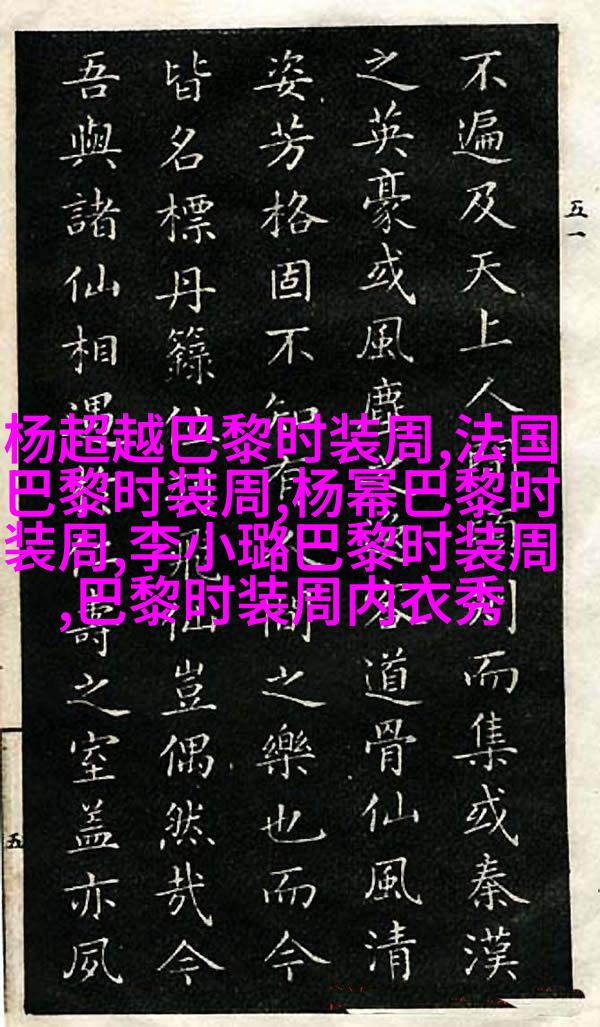 不遍及天上人而集或秦漢
之英豪或風塵道骨仙風清
姿芳格固不知有間之樂也而今
皆名標丹籙位飛仙豈偶然哉今
吾與諸仙相遇壽之室蓋亦夙
五一
五
杨超越巴黎时装周,法国
巴黎时装周,杨幂巴黎时
装周,李小璐巴黎时装周
,巴黎时装周内衣秀